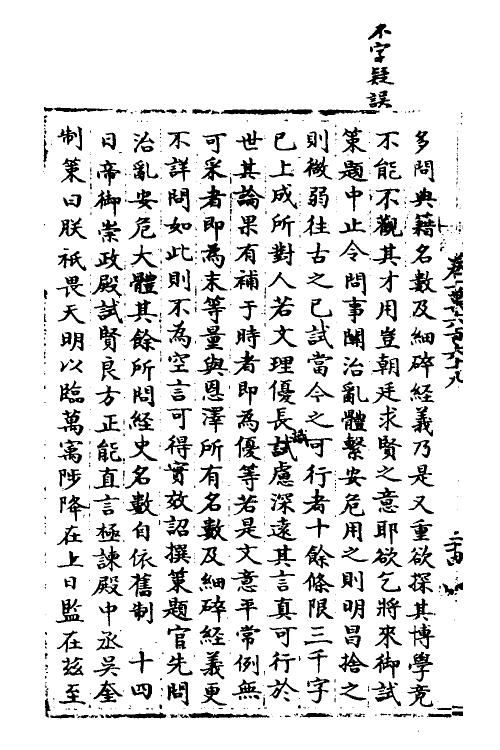 不字疑誤
卷一萬六百六十八
二十四
多問典籍名數及細碎經義乃是又重欲探其博學竟
不能不觀其才用豈朝廷求賢之意耶欲乞將來御試
策題中止令問事關治亂體繫安危用之則明昌捨之
則微弱往古之已試當今之可行者十餘條限三千字
已上成所對人若文理優長試慮深遠其言真可行於
識
世其論果有補于時者即為優等若是文意平常例無
可采者即為末等量與恩澤所有名數及細碎經義更
不詳問如此則不為空言可得實效詔撰策題官先問
治亂安危大體其餘所問經史名數自依舊制　十四
日帝御崇政殿試賢良方正能直言極諫殿中丞吳奎
制策曰朕祗畏天明以臨萬㝢陟降在上日監在茲至